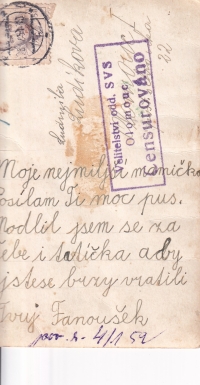 Ludmila
Ludíkova
22
Velitelství odd. SVS
Olomouc
Censurováno
Moje nejmilejší mamičko
Posílam Ti moc pus.
Modlil jsem se za
Tebe i tatička aby
jste se brzy vratili
Tvuj Fanoušek
4/1 52